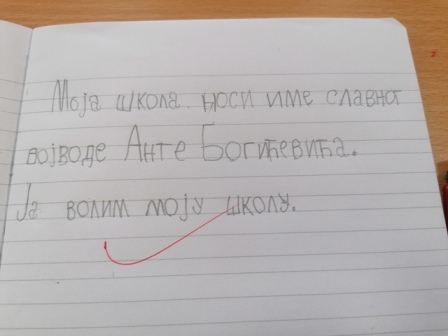 Моја школа носи име славног
војводе Анте Богићевића.
Ја волим моју школу.